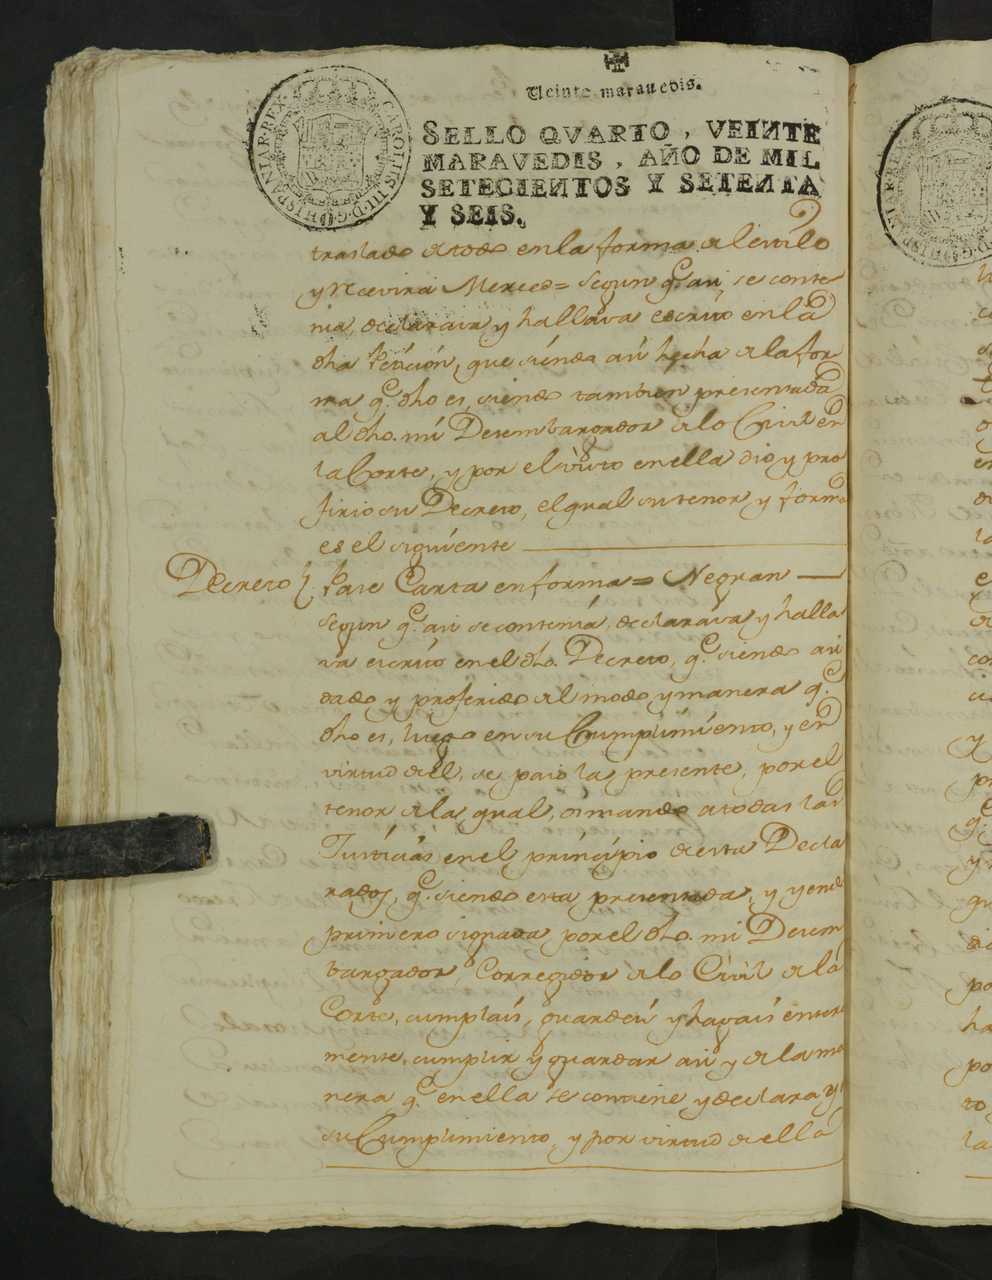 CAROLUS III D G HISPANIAR REX
Veinte maravedis.
SELLO QVARTO, VEINTE
MARAVEDIS, AÑO DE MIL
SETECIENTOS Y SETENTA
Y SEIS.
traslado de todo en la forma del estilo
y recevira Merced = Segun q.e assi se conte
nia, declarava y hallava escrito en la
dha Peticion, que siendo assi hecha de la for
ma q.e dho es, siendo tambien presentada
al dho. mi Desembargador de lo Civil en
la Corte, y por el visto en ella dio y pro
firio su Decreto, el qual su tenor y forma
es el siguiente
Decreto Pase Carta en forma = Negran
segun q.e assi se contenia, declarava y halla
va escrito en el dho. Decreto, q.e siendo assi
dado y proferido del modo y manera q.e
dho es, luego en su Cumplimiento, y en
virtud de el, se paso la presente, por el
tenor de la qual, os mando a todas las
Justicias en el principio de esta Decla
rados, q.e siendo esta presentada, y yendo
primero signada por el dho. mi Desem
bargador, Corregidor de lo Civil de la
Corte, cumplais, guardeis y hagais entera
mente, cumplir y guardar assi y de la ma
nera q.e en ella se contiene y declara y
su Cumplimiento, y por virtud de ella